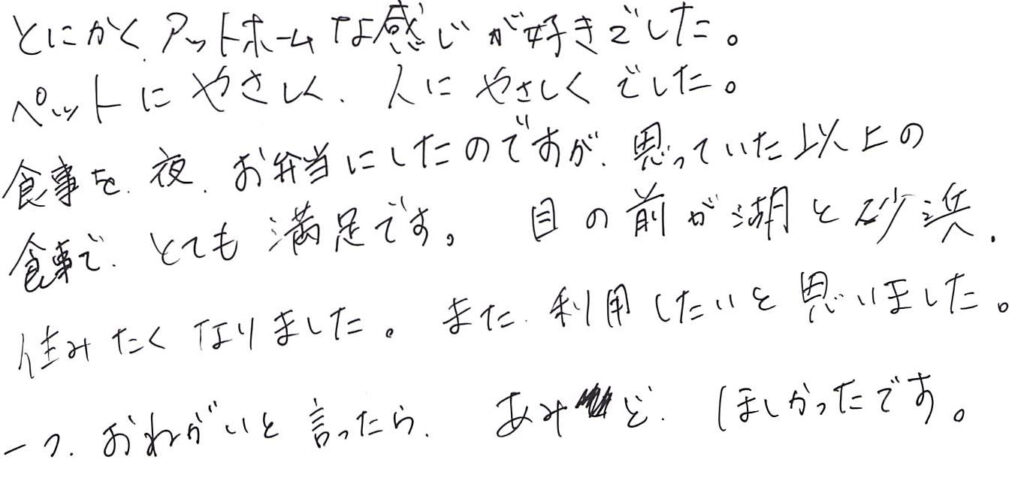 とにかく、アットホームな感じが好きでした。
ペットにやさしく、人にやさしくでした。
食事を、夜、お弁当にしたのですが、思っていた以上の
食事で、とても満足です。 目の前が湖と砂浜、
住みたくなりました。また、利用したいと思いました。
一つ、おねがいと言ったら、あみど、ほしかったです。